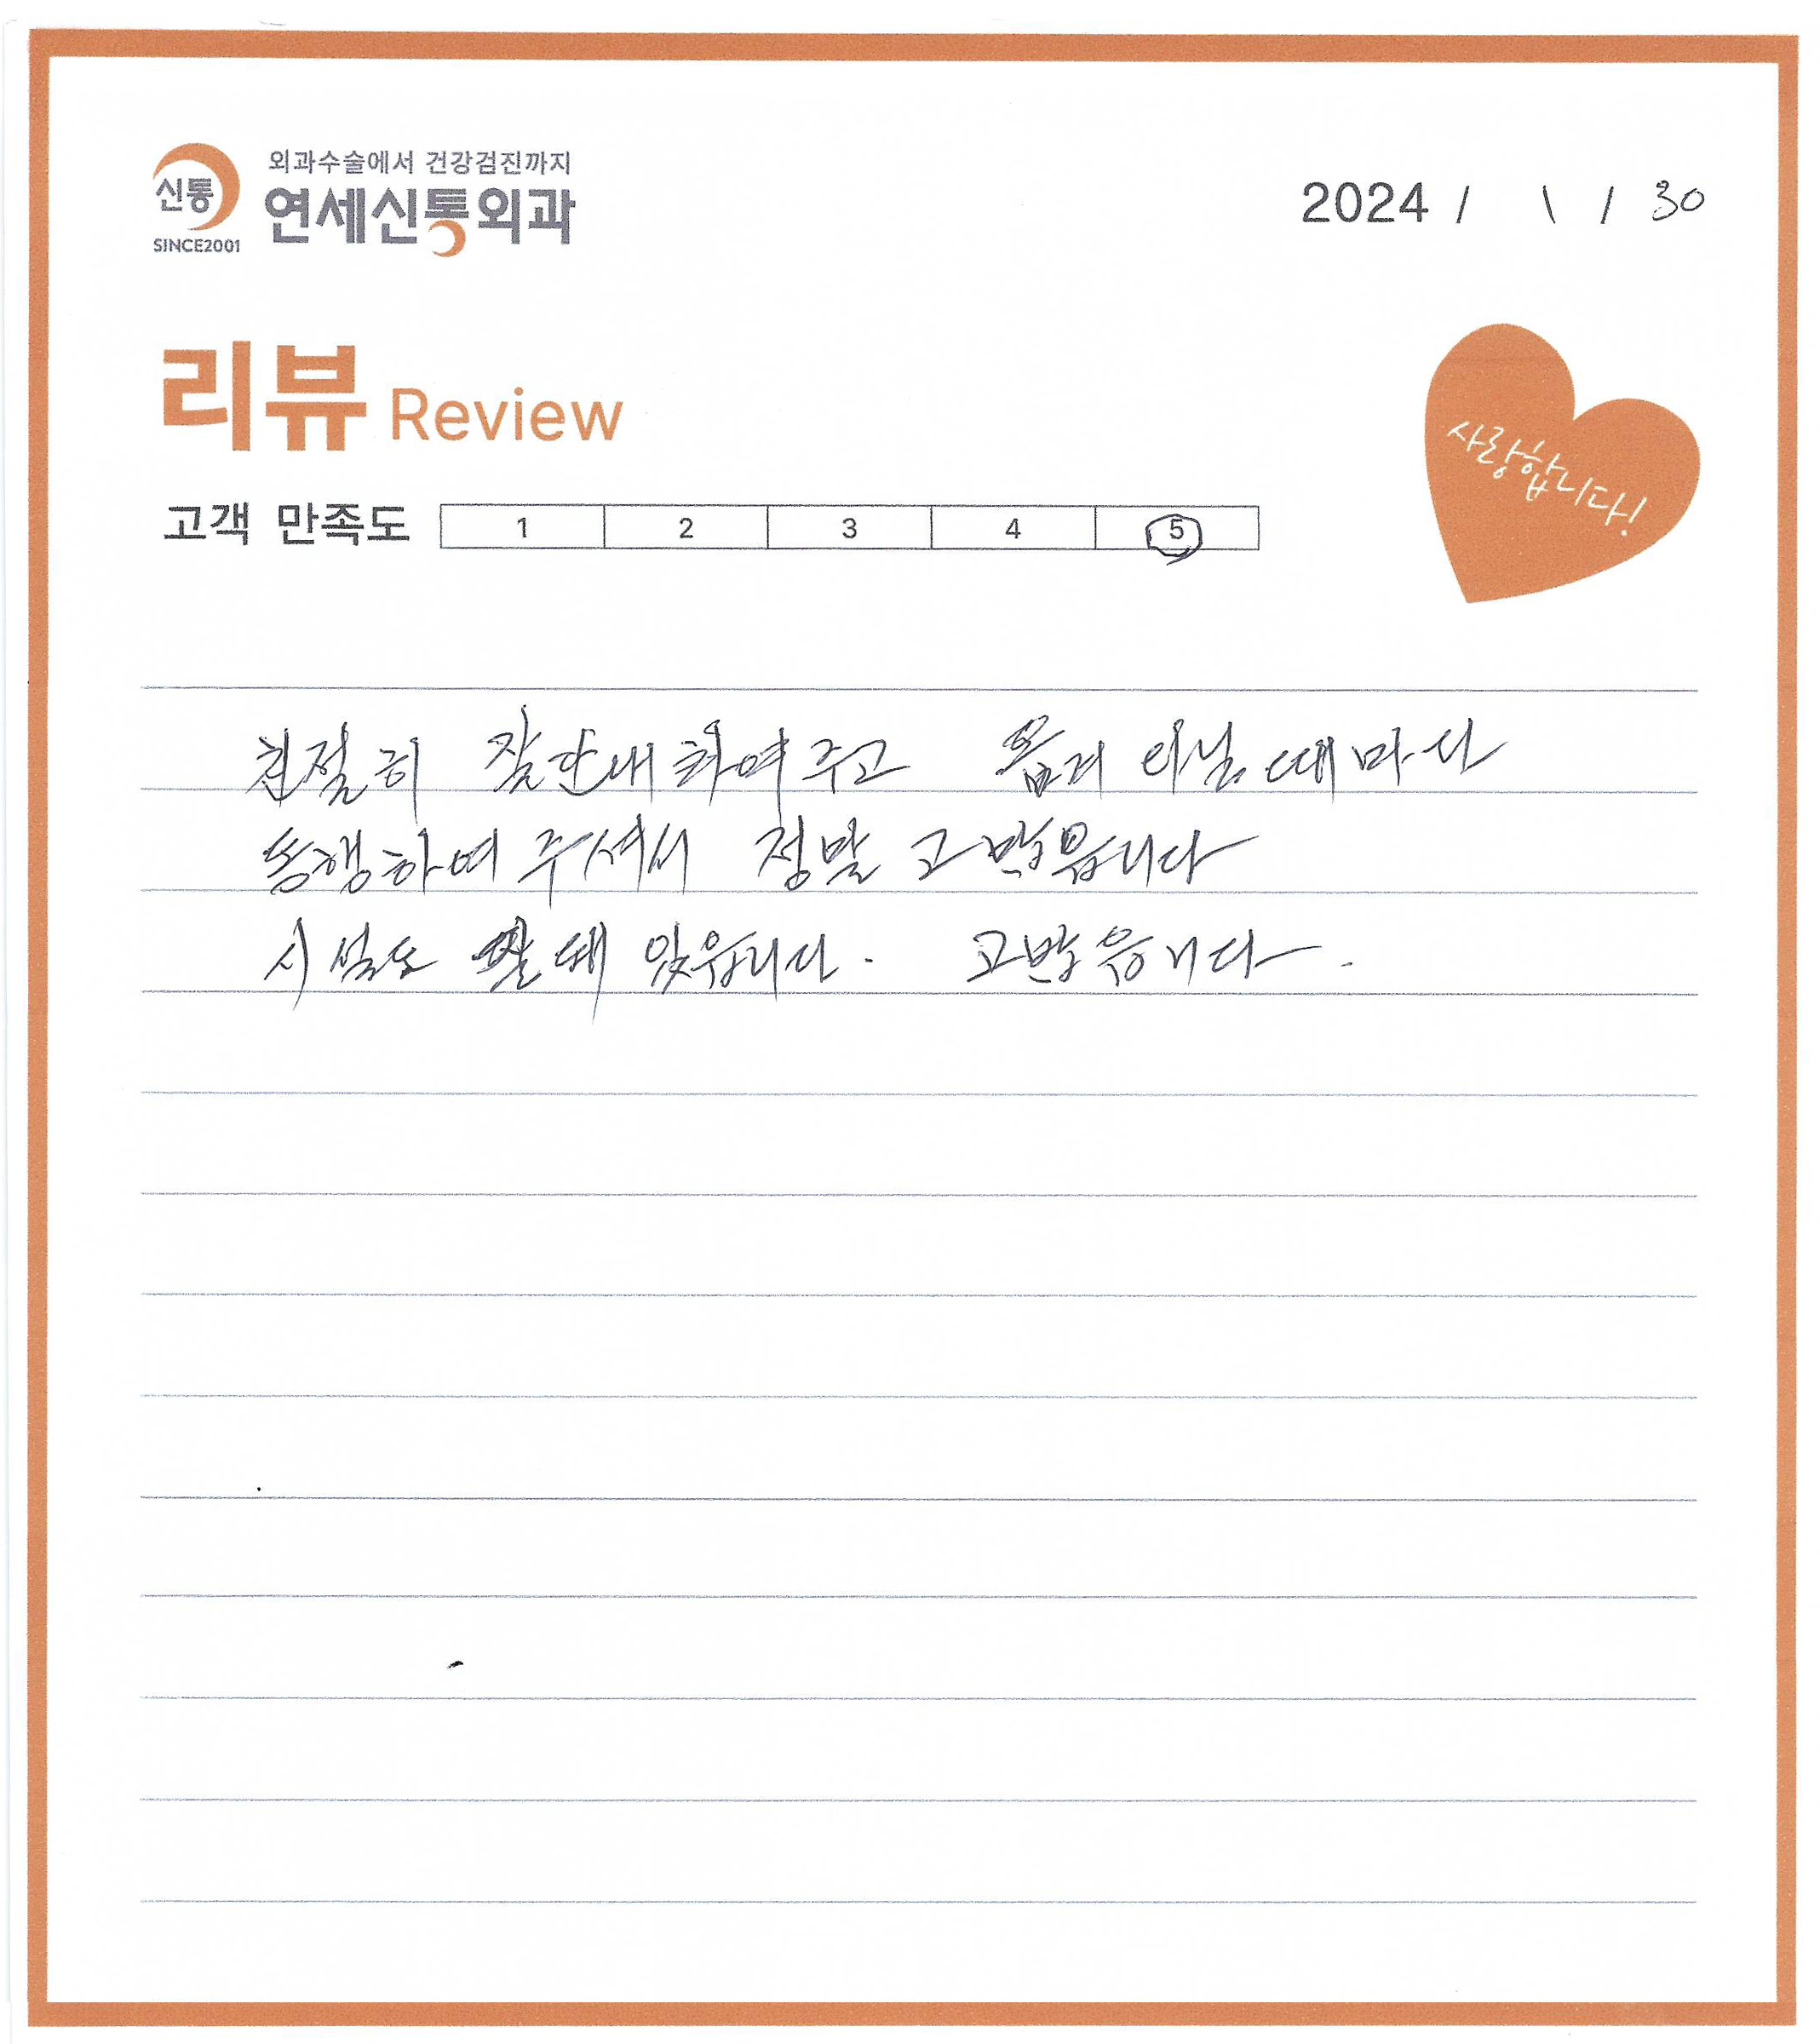 외과수술에서 건강검진까지
신통
연세신통외과
SINCE2001
2024 / 1 / 30
리뷰 Review
사랑합니다!
고객 만족도 1 2 3 4 5
친절히 잘 안내하여 주고 때마다
동행하여 주셔서 정말 고맙읍니다
시설도 잘 돼 있읍니다. 고맙읍니다.